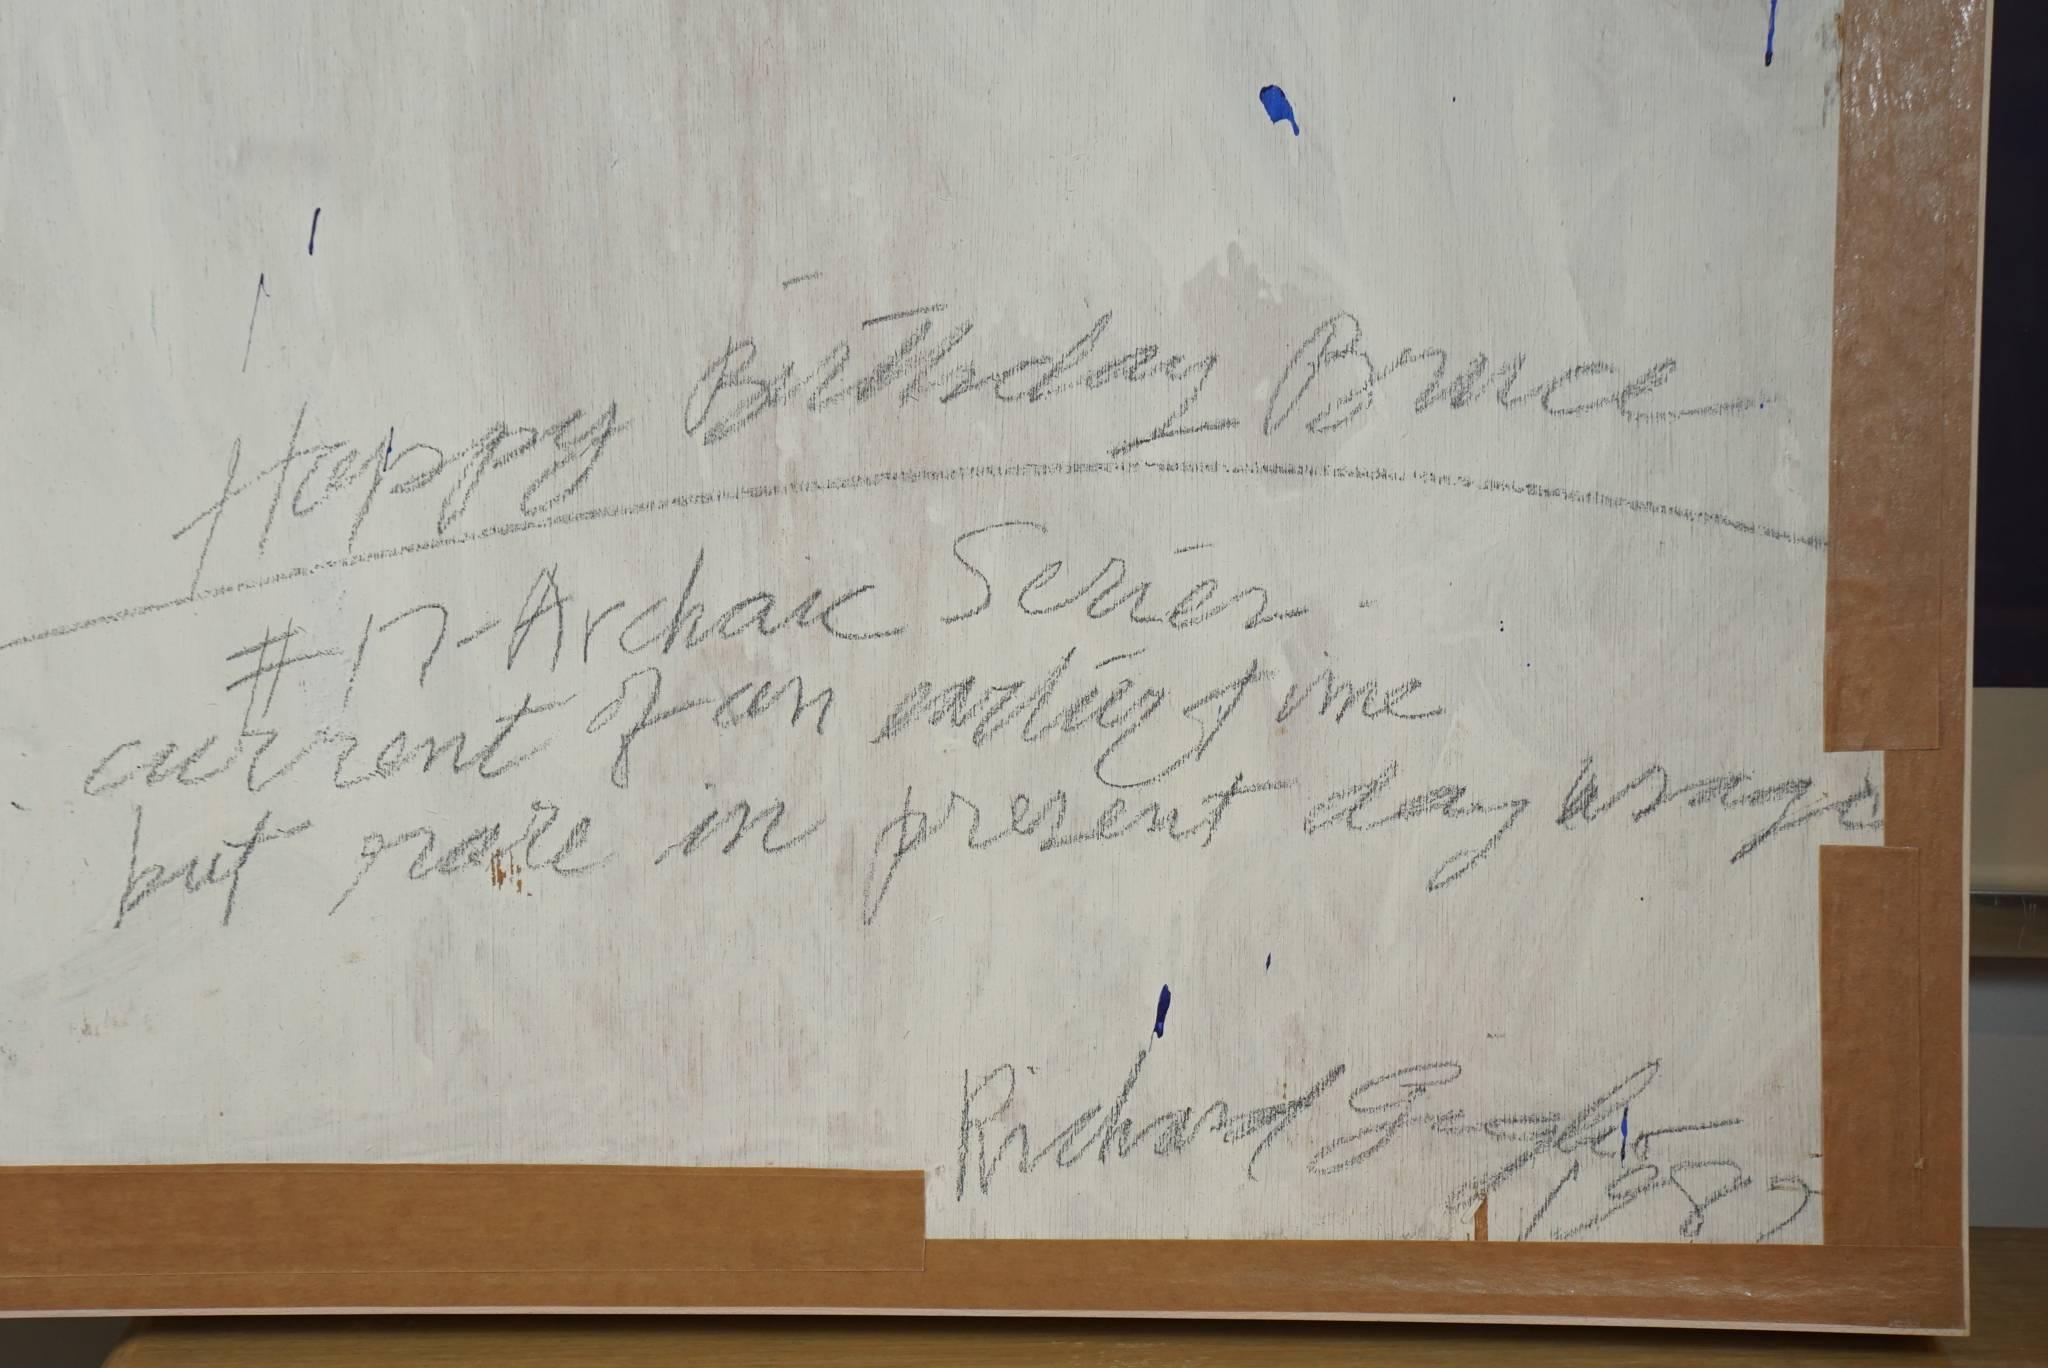 Happy Birthday Bruce
#17-Archaic Series.
current of an earlier time
but rare in present day usage
Richard